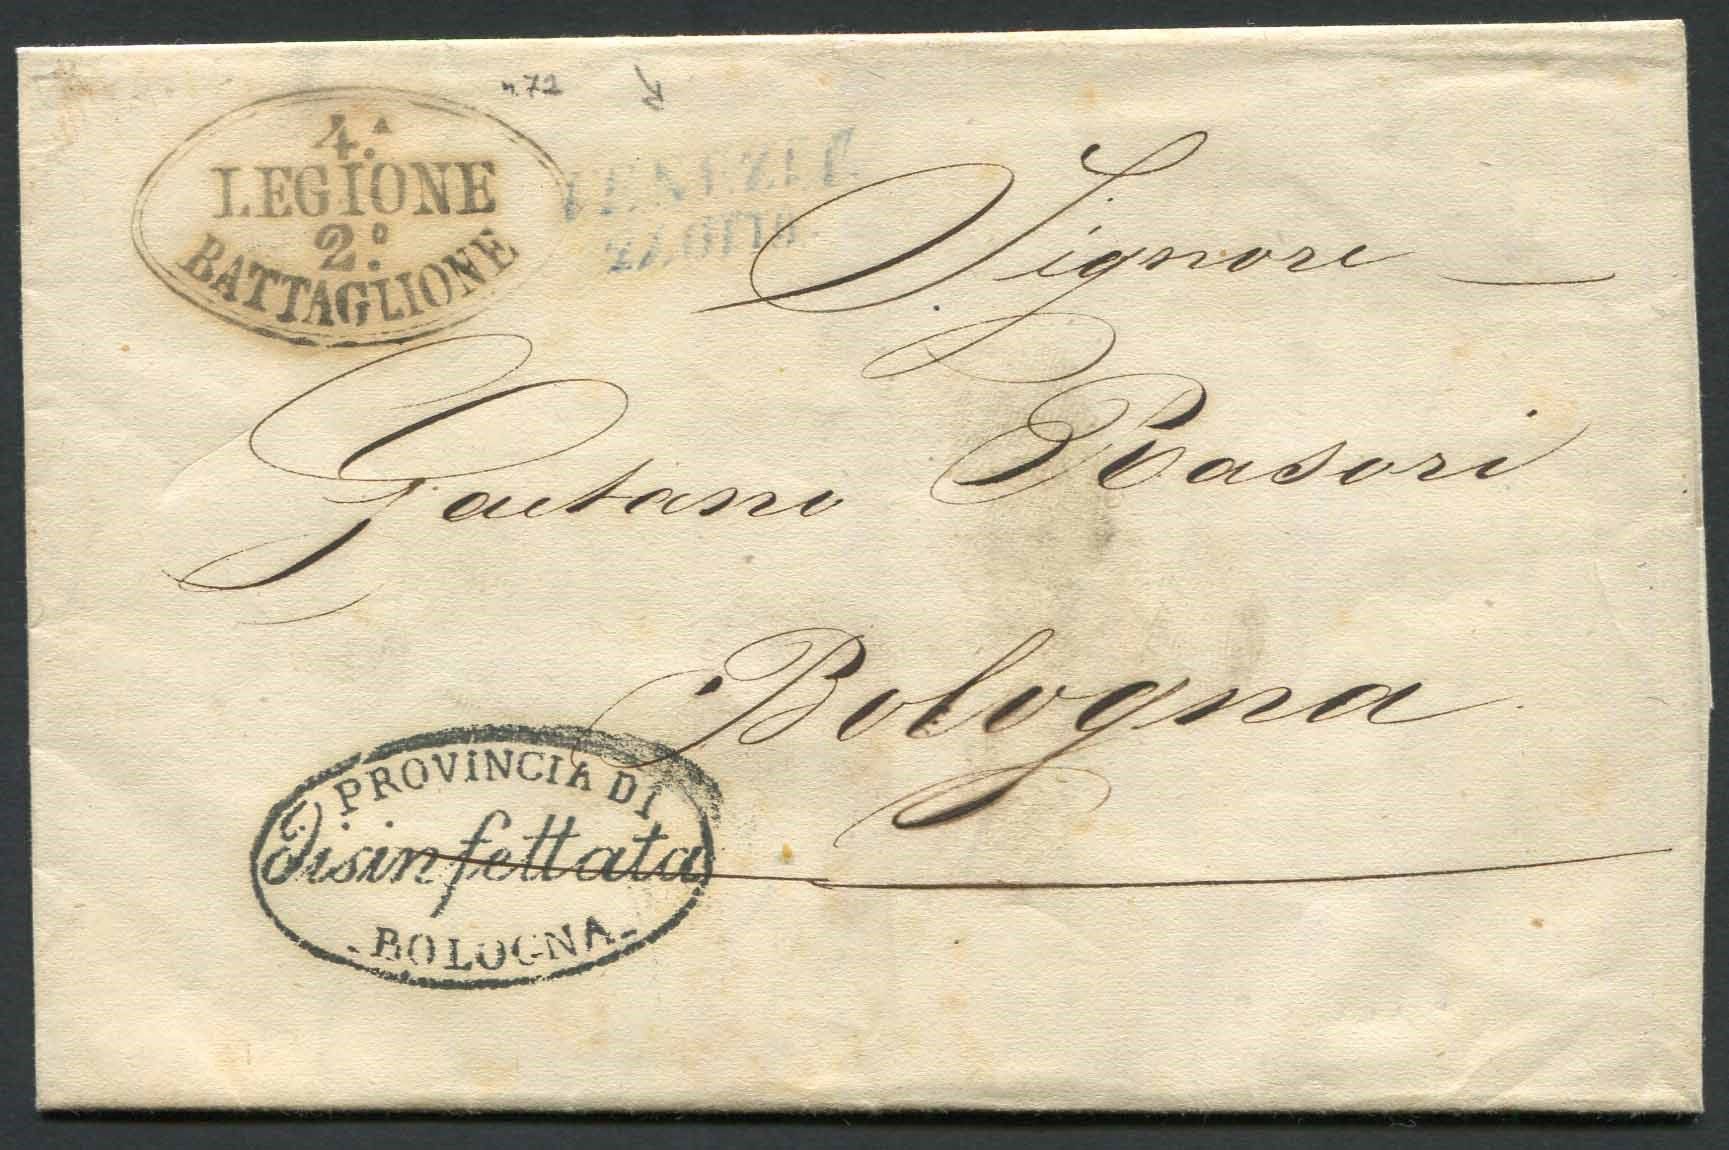 n. 72
4.ª
LEGIONE
2.º
BATTAGLIONE
VENEZIA
Signore
Gaetano Rasori
Bologna
PROVINCIA DI
disinfettata
- BOLOGNA -